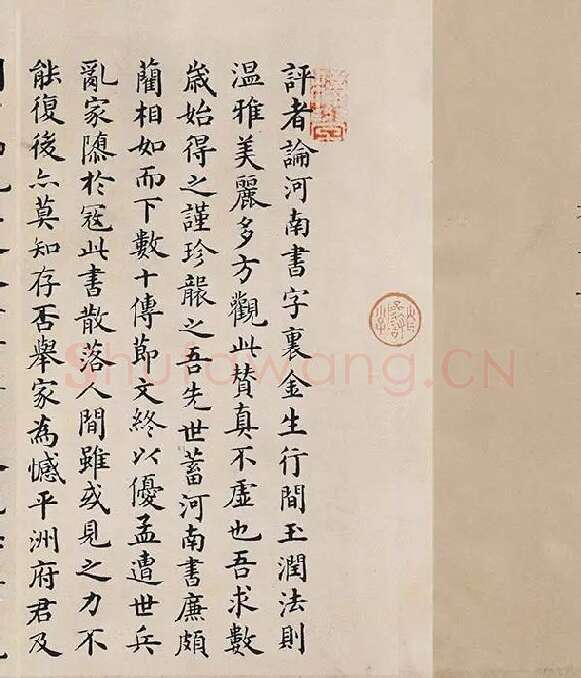 評者論河南書字裏金生行間玉潤法則
温雅美麗多方觀此賛真不虛也吾求數
歲始得之謹珍襲之吾先世蓄河南書廉頗
藺相如而下數十傳節文終以優孟遭世兵
亂家隳於冦此書散落人間雖或見之力不
能復後亦莫知存否舉家為憾平洲府君及
Shufawang.CN